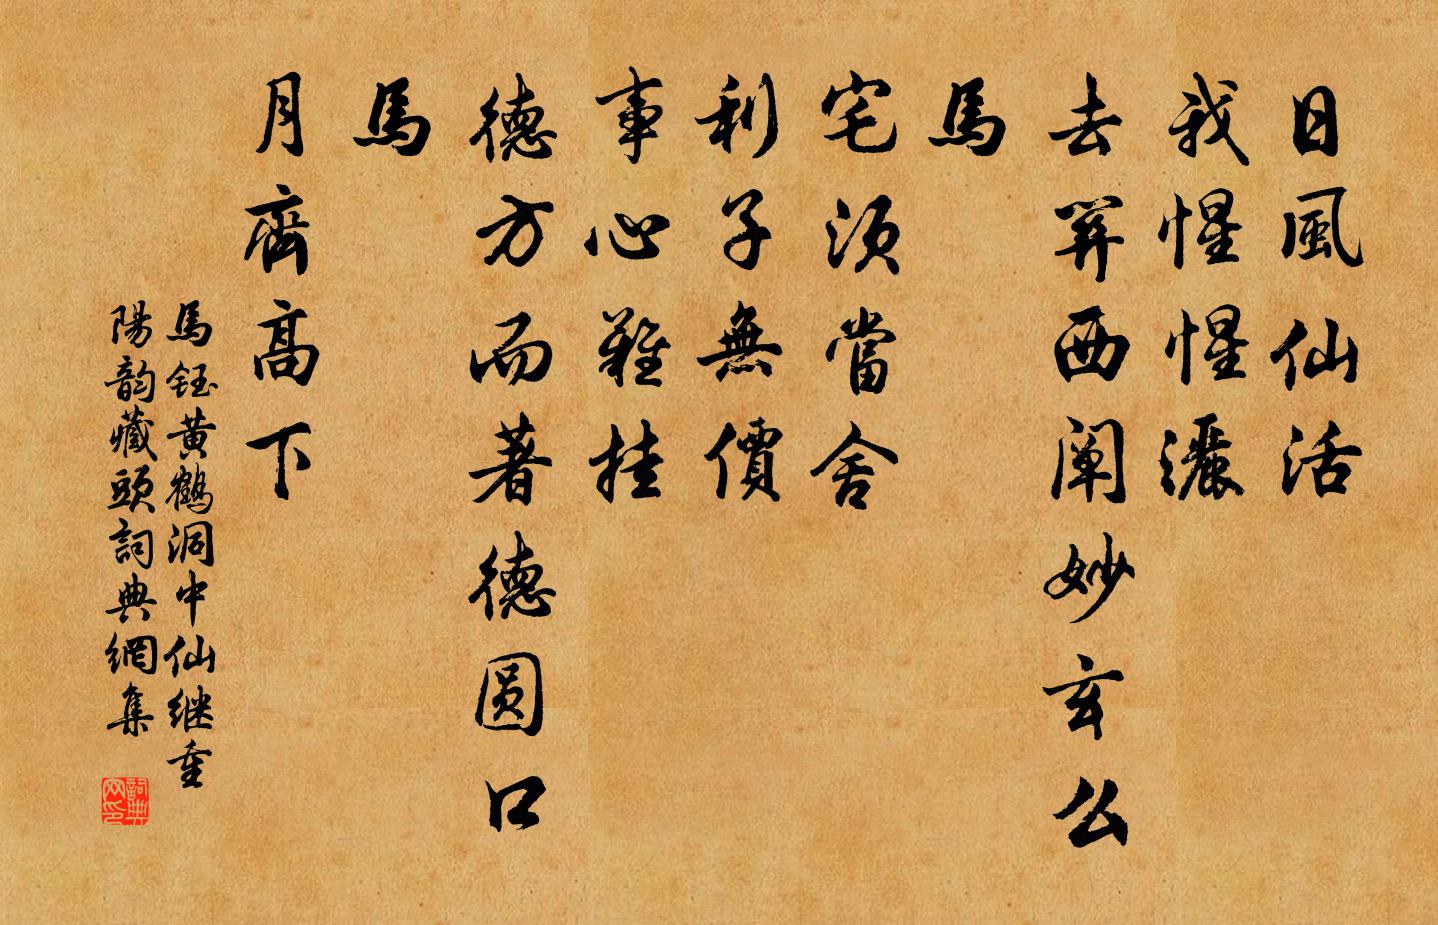 日風仙活
我惺惺灑
去筭西阐妙玄么
馬
宅須當舍
利子無價
事心難挂
德方而著德圆口
馬
月齊高下
馬钰黄鶴洞中仙继重
陽韵藏頭詞典網集
詞典网印